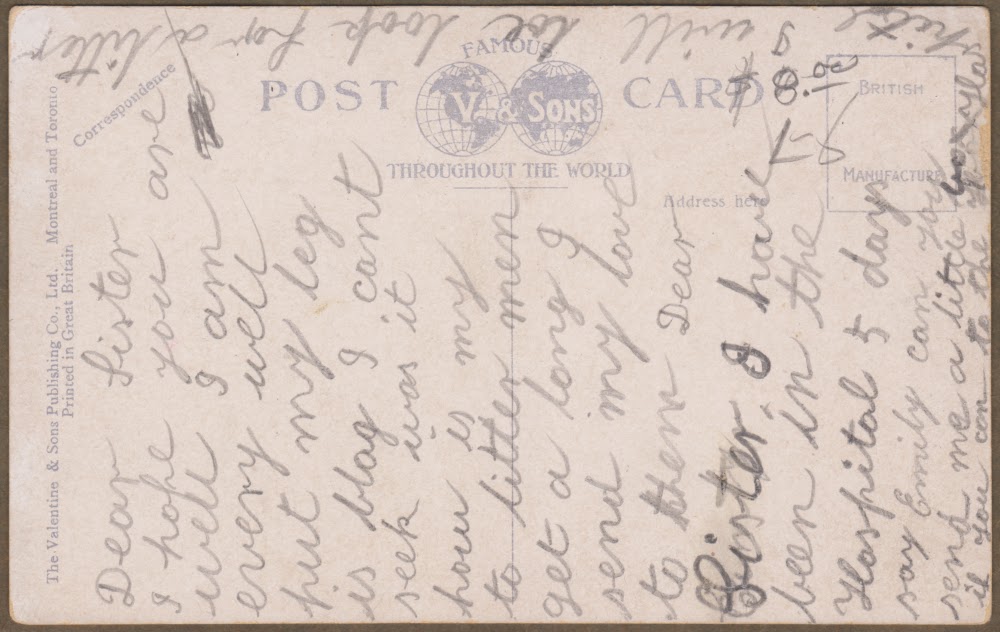 FAMOUS
POST CARD
V. & SONS
THROUGHOUT THE WORLD
Correspondence
Address here
BRITISH
MANUFACTURE
The Valentine & Sons Publishing Co., Ltd. Montreal and Toronto
Printed in Great Britain
Dear Sister
I hope you are
well I am
every well
put my leg
is blag I cant
seek was it
how is my
to litter men
get a long I
send my love
to then Dear
Sister I have
been in the
Hospital 5 days
say Emily can you
send me a little
if you can to the
will look for a litter